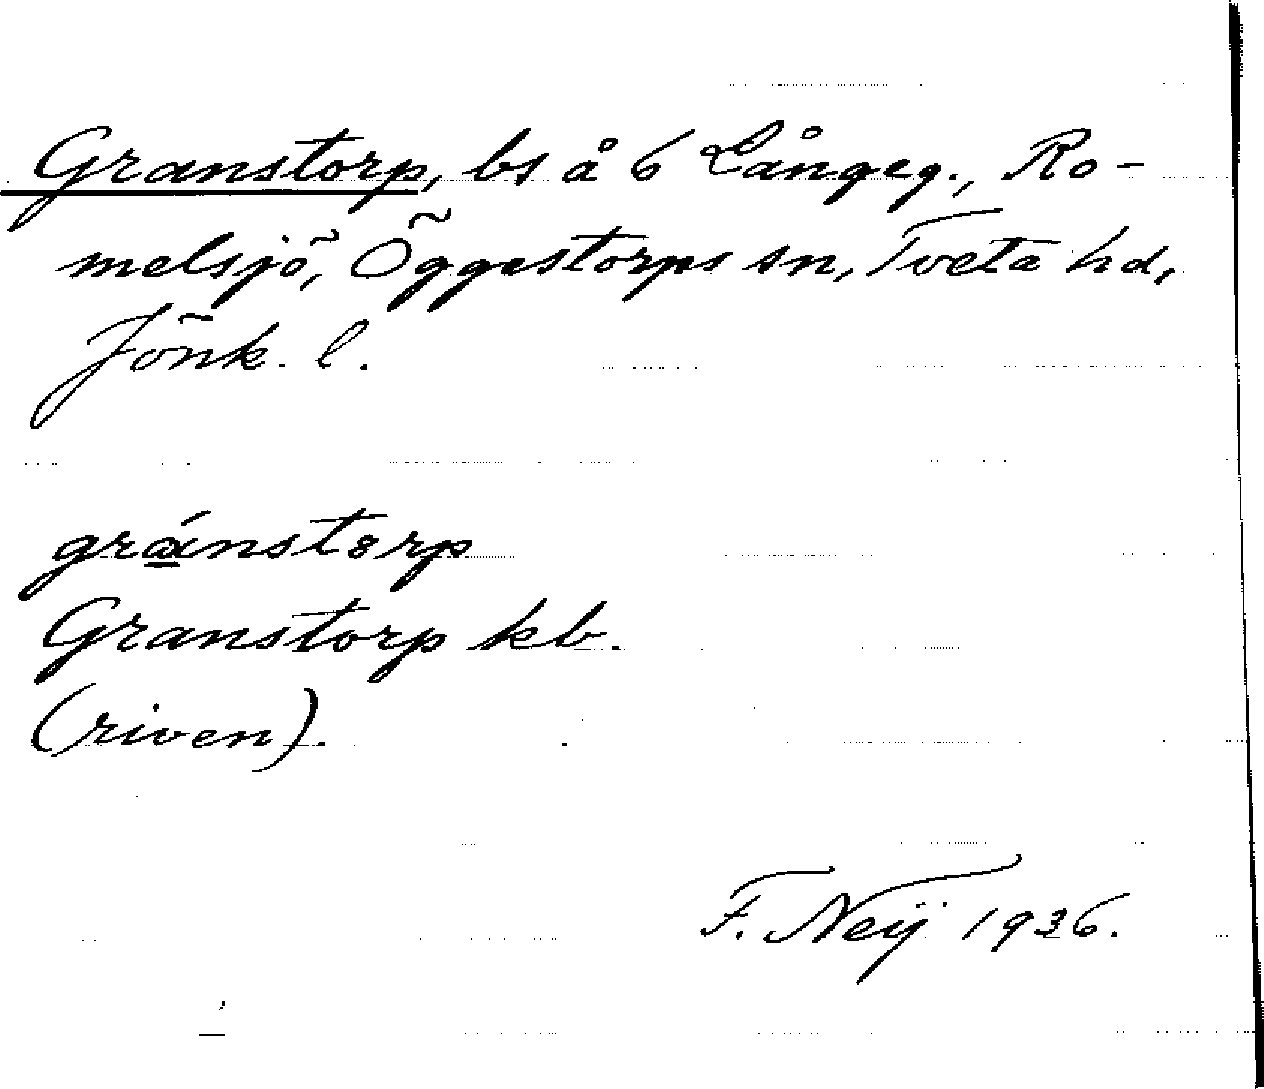 Granstorp, bs å 6 Långeg., Ro-
melsjö, Öggestorps sn, Tveta hd,
Jönk. l.
gránstorp
Granstorp kb.
(riven).
F. Neij 1936.